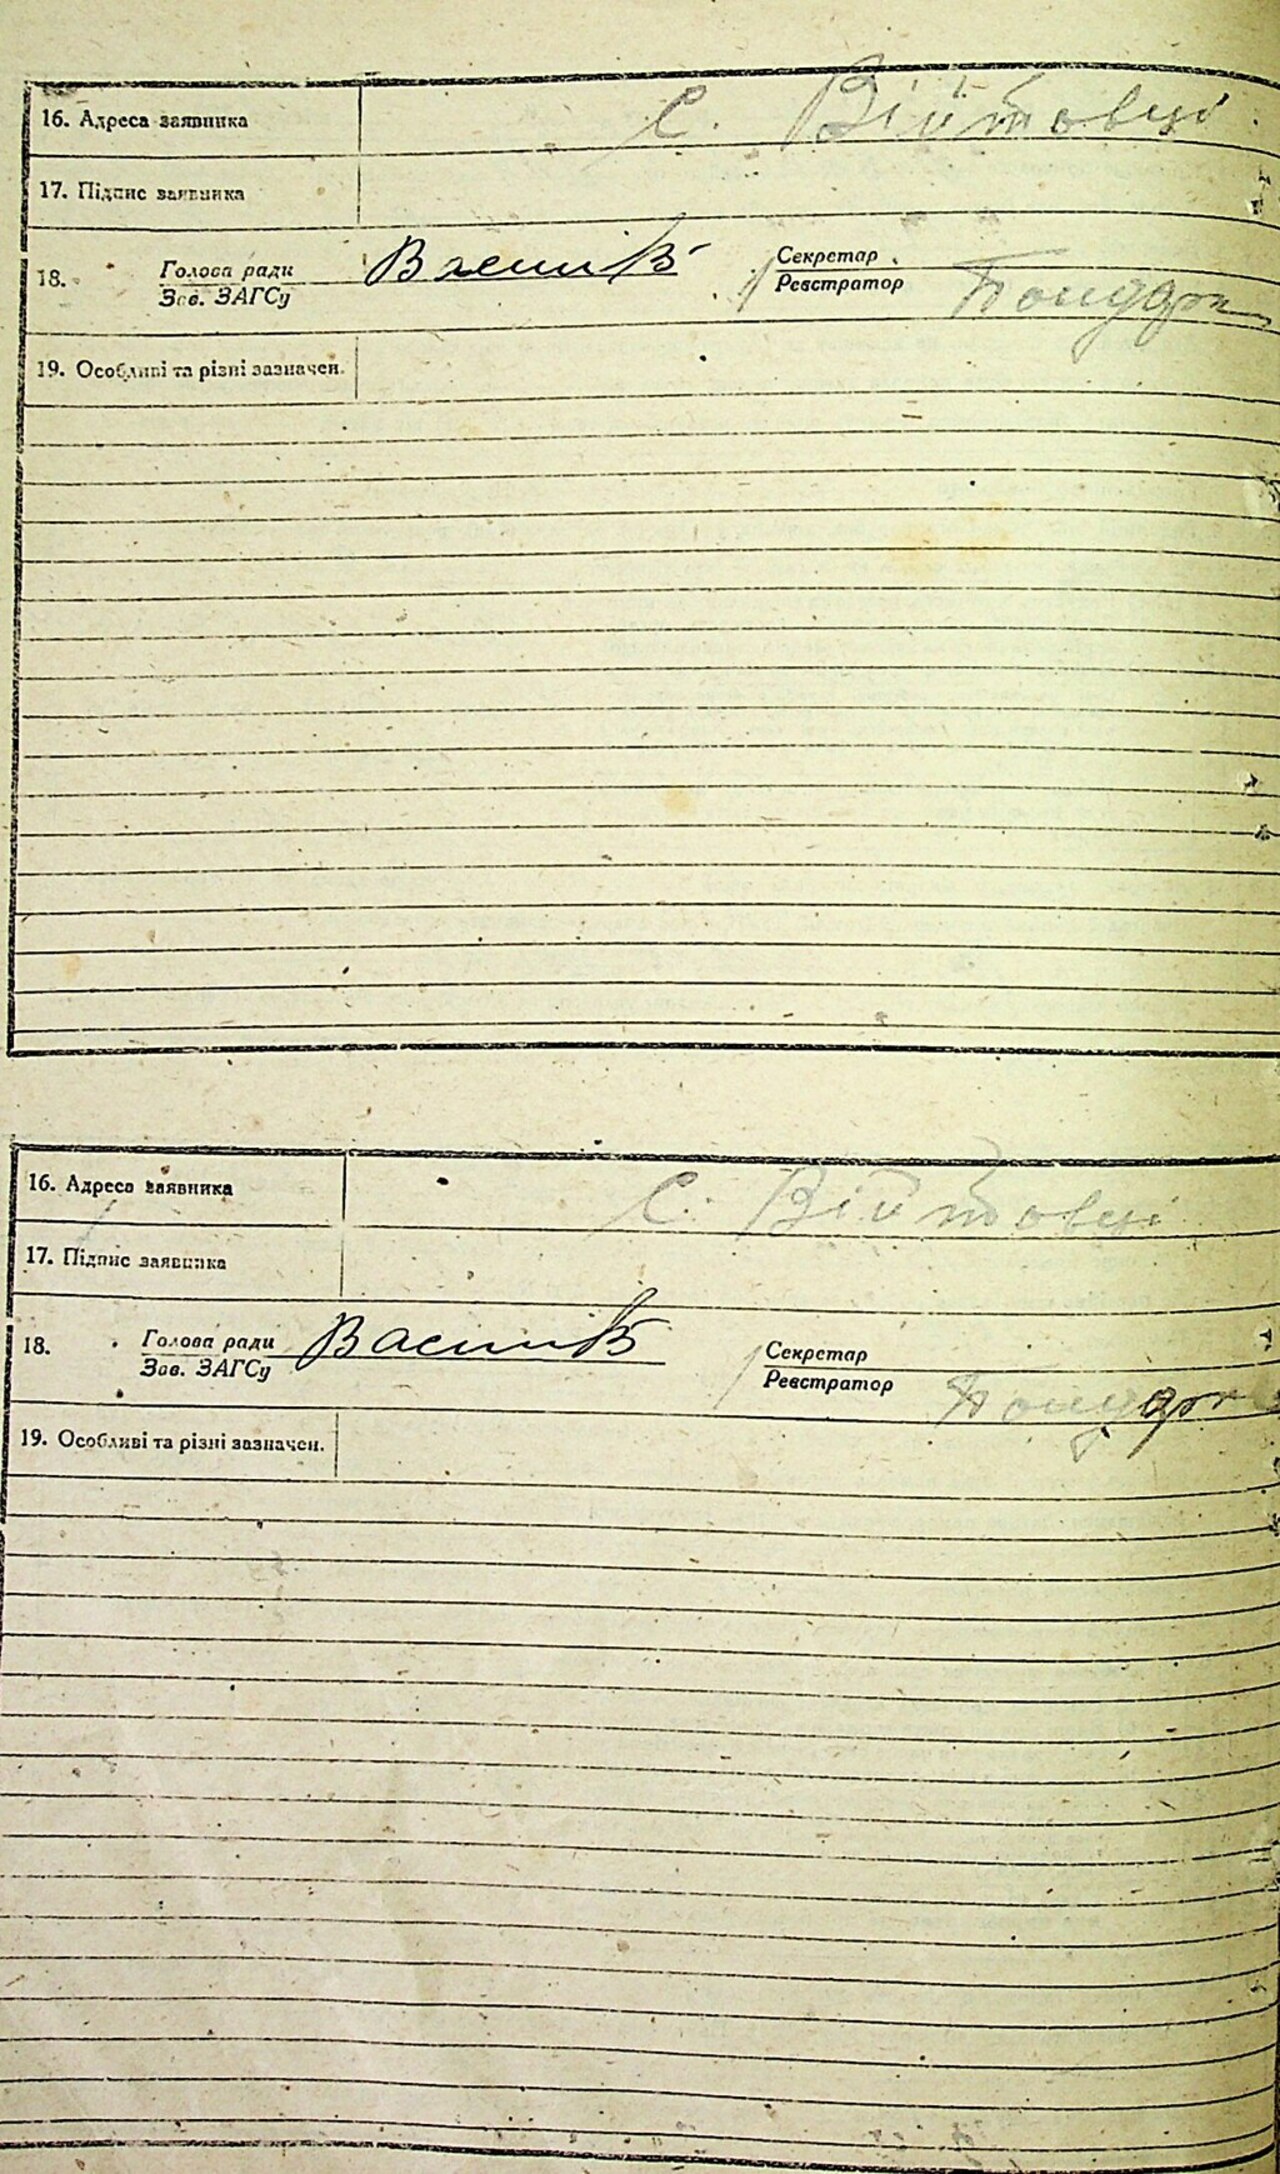 16. Адреса заявника с. Війтовці.
17. Підпис заявника
18. Голова ради Василів Секретар
Зав. ЗАГСу Реєстратор
19. Особливі та різні зазначен.
16. Адреса заявника с. Війтовці
17. Підпис заявника
18. Голова ради Василів Секретар
Зав. ЗАГСу Реєстратор
19. Особливі та різні зазначен.